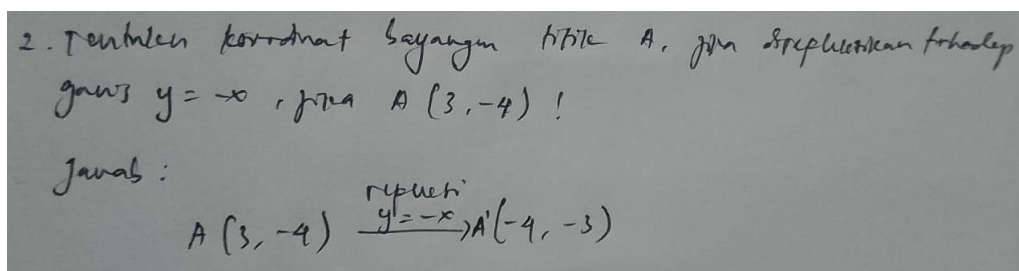 2. Tentukan koordinat bayangan titik A, jika direfleksikan terhadap
garis y = -x, jika A (3, -4) !
Jawab :
refleksi
A (3, -4) y = -x → A'(-4, -3)